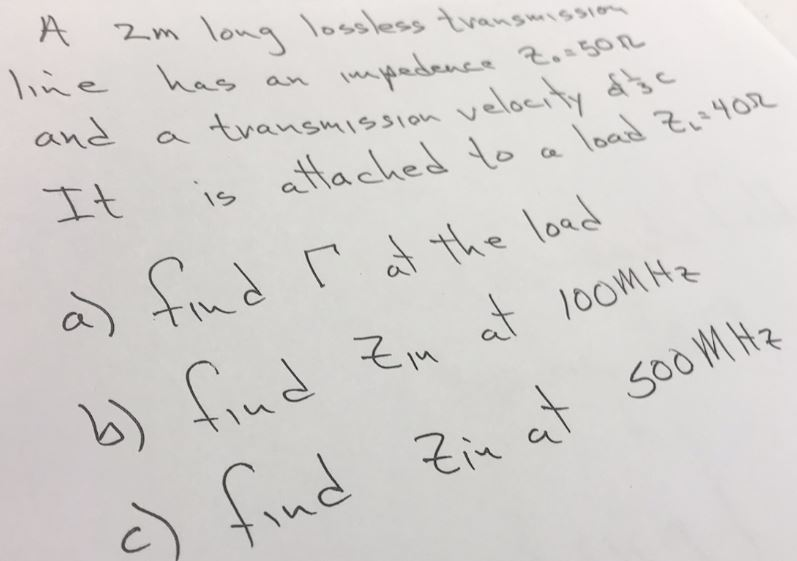 A 2m long lossless transmission
line has an impedence Z₀=50Ω
and a transmission velocity of ⅓c
It is attached to a load Z_L=40Ω
a) find Γ at the load
b) find Zin at 100MHz
c) find Zin at 500MHz